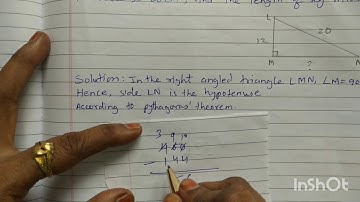 and the length of
L
12
20
M
?
N
Solution: In the right angled triangle LMN, ∠M=90
Hence, side LN is the hypotenuse
According to pythagoras' theorem.
3 9 10
4 0 0
- 1 4 4
6
Made with
InShOt